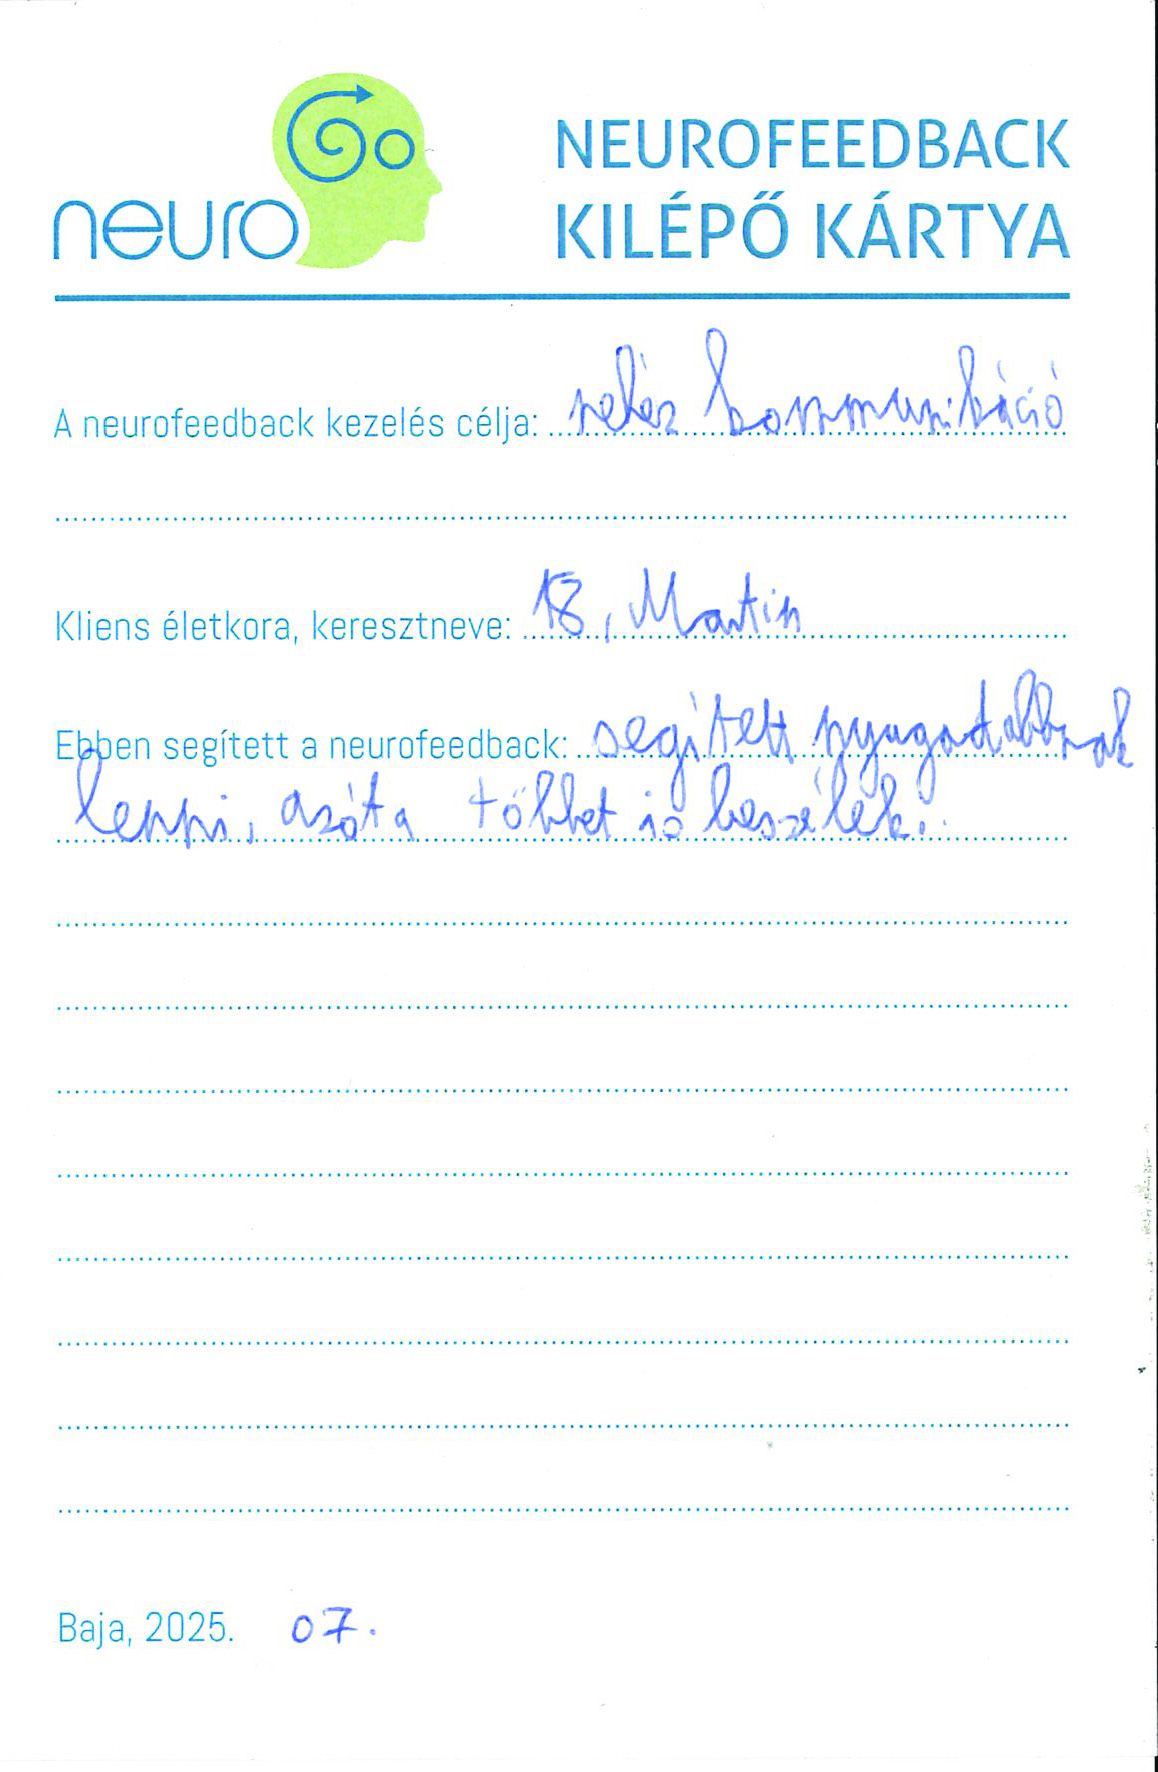 neuro
NEUROFEEDBACK
KILÉPŐ KÁRTYA
A neurofeedback kezelés célja: nehéz kommunikáció
Kliens életkora, keresztneve: 18, Martin
Ebben segített a neurofeedback: segített nyugodtabbnak
lenni, azóta többet is beszélek.
Baja, 2025. 07.